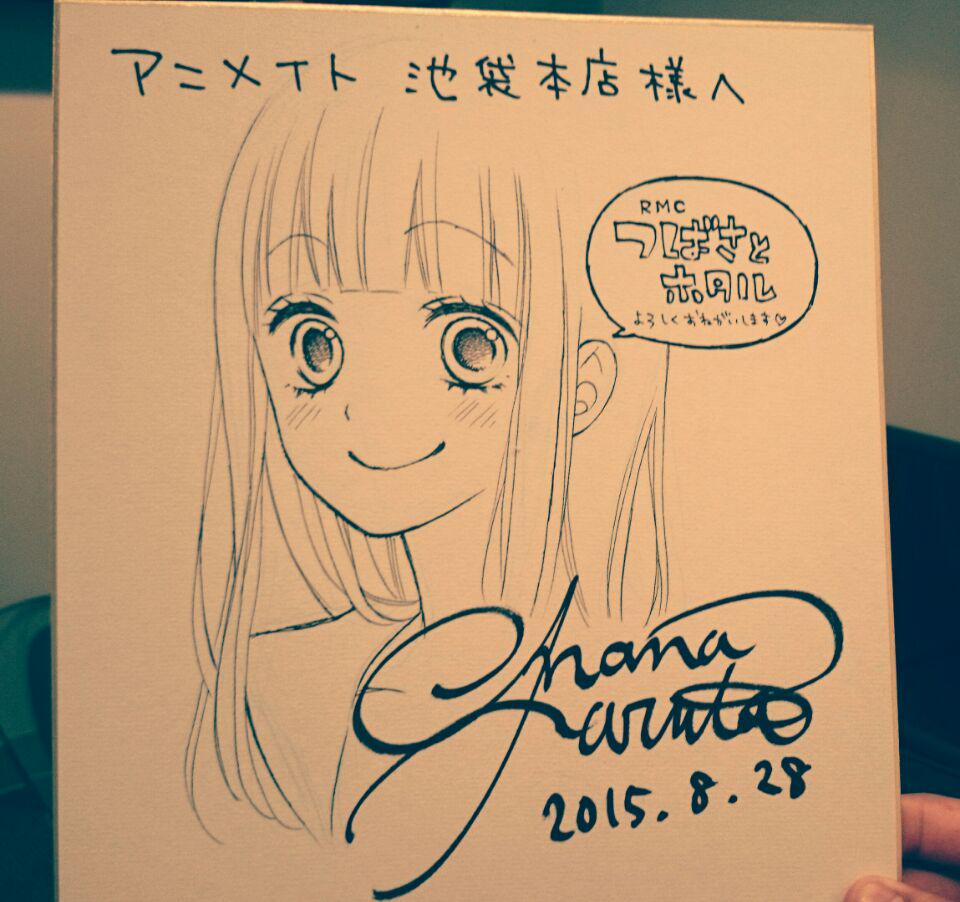 アニメイト 池袋本店様へ
RMC
つばさと
ホタル
よろしくおねがいします♡
2015.8.28